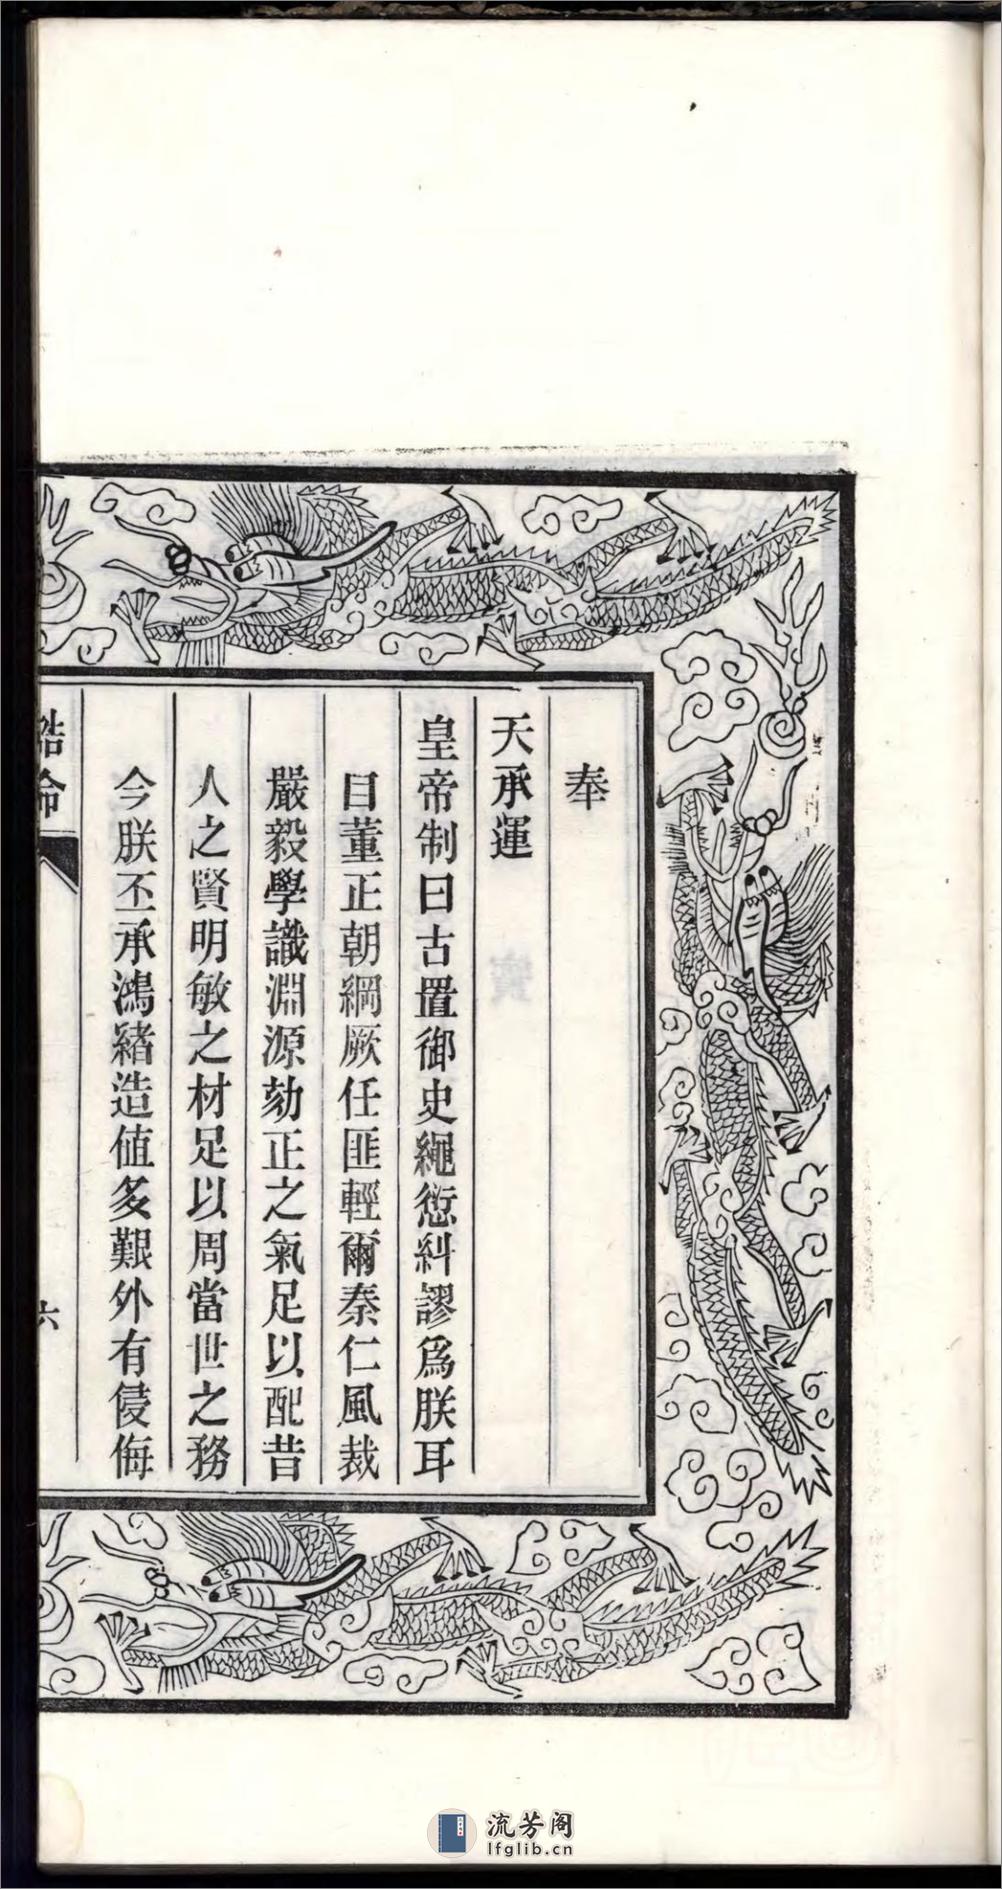 奉
天承運
皇帝制曰古置御史繩愆糾謬爲朕耳
目董正朝綱厥任匪輕爾秦仁風裁
嚴毅學識淵源劾正之氣足以配昔
人之賢明敏之材足以周當世之務
今朕丕承鴻緒造值多艱外有侵侮
誥命
六
流芳阁
lfglib.cn